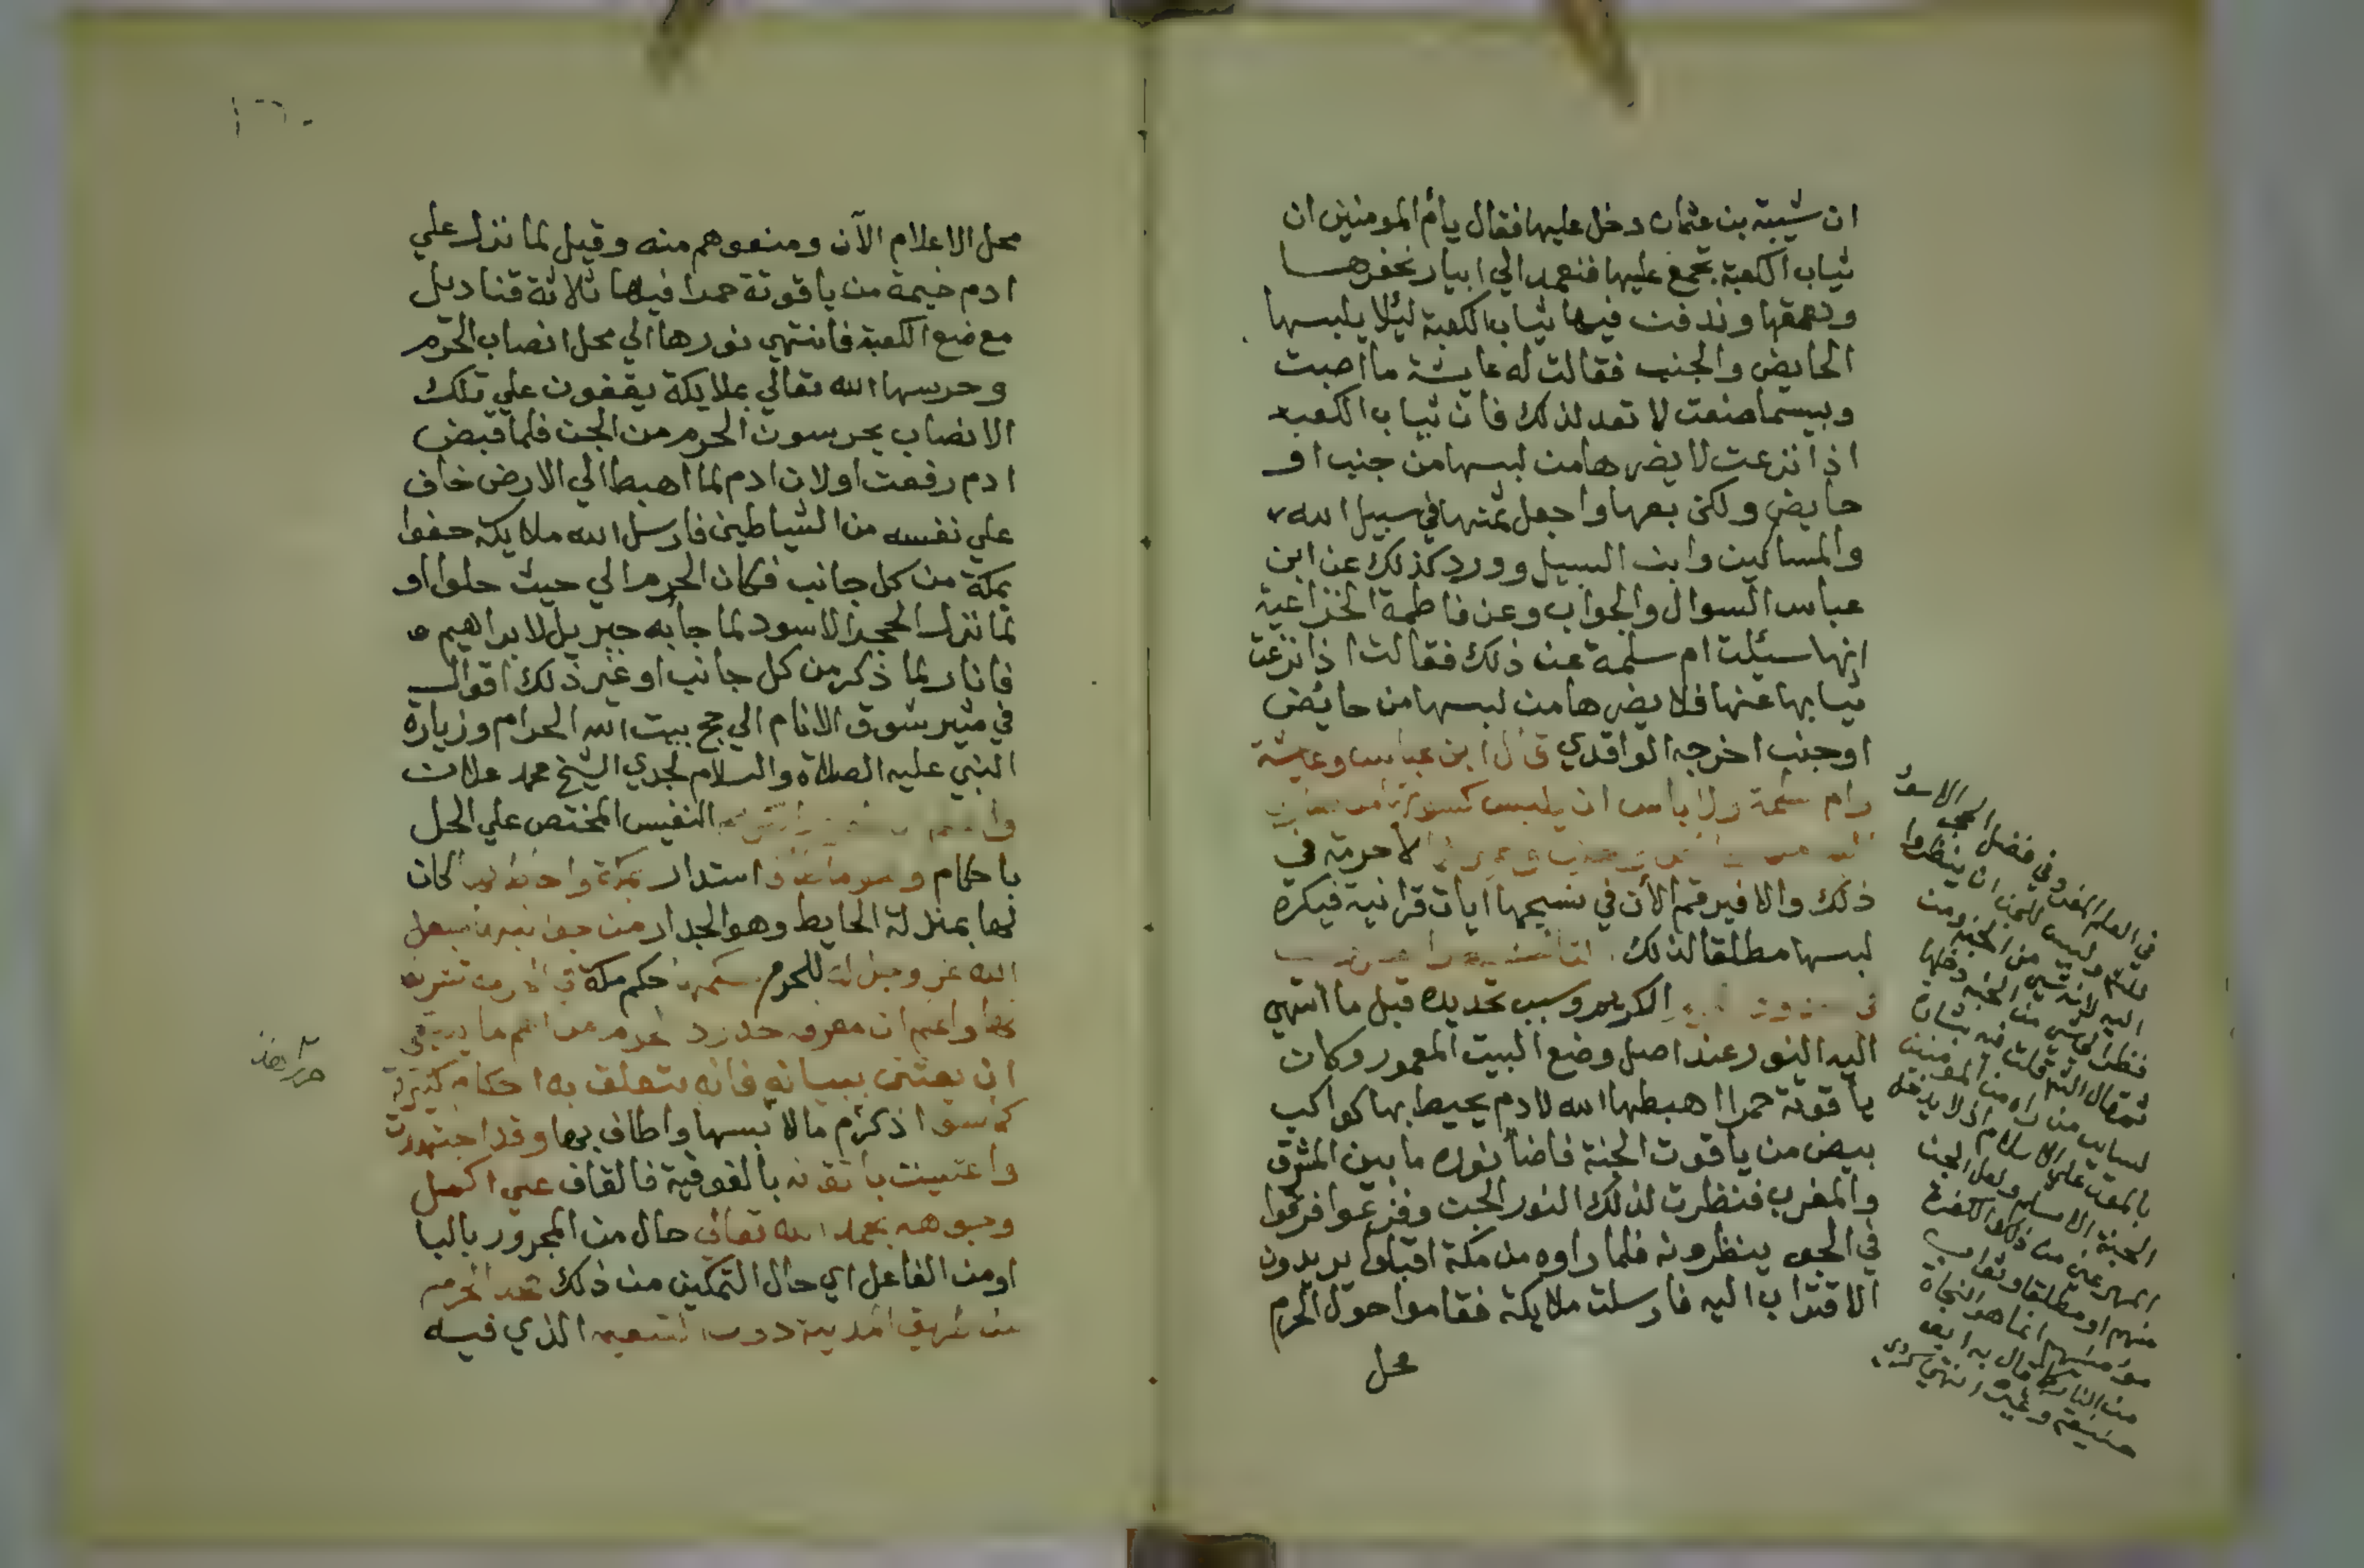 ان شيبة بن عثمان دخل عليها فقال يا أم المومنين ان
ثياب الكعبة تجمع عليها فنعمد الي ابيار نحفرها
ونعمقها وندفن فيها ثياب الكعبة ليلا يلبسها
الحايض والجنب فقالت له عايشة ما اصبت
وبيسما صنعت لا تعد لذلك فان ثياب الكعبة
اذا نزعت لا يضرها من لبسها من جنب او
حايض ولكن بعها واجعل ثمنها في سبيل الله
والمساكين وابن السبيل وورد كذلك عن ابن
عباس السوال والجواب وعن فاطمة الخزاعية
انها سئلت ام سلمة عن ذلك فقالت اذا نزعت
ثيابها عنها فلا يضرها من لبسها من حائض
او جنب اخرجه الواقدي قال ابن عباس وعايشة
وام سلمة ولا باس ان يلبس كسوتها من
لا حرمة في
ذلك والا فيرقم الآن في نسيجها ايات قرانية فيكره
لبسها مطلقا لذلك
الكريم وسبب تحديده قبل ما انتهي
اليه النور عند اصل وضع البيت المعمور وكان
ياقوتة حمرا اهبطها الله لادم يحيط بها كواكب
بيض من ياقوت الجنة فاضأ نوره ما بين المشرق
والمغرب فنظرت لذلك النور الجن وفزعوا فرقوا
في الجو ينظرونه فلما راوه من مكة اقبلوا يريدون
الاقتراب اليه فارسلت ملايكة فقاموا حول الحرم
محل
في فضل الحجر الاسود
وليس للجن ان ينظروا
اليه لانه شي من الجنة ومن
نظر الي شي من الجنة دخلها
ثم قال قلت فيه بشارة
لساير من راه من المومنين
بالموت علي الاسلام اذ لا يدخل
الجنة الا مسلم ولعل الجن
من ذلك الكفرة
منهم او مطلقا وثواب
مؤمنهم انما هو النجاة
من النار كما قال به ابو
حنيفة وغيره انتهي
محل الاعلام الآن ومنعوهم منه وقيل لما نزل علي
ادم خيمة من ياقوتة حمرا فيها ثلاثة قناديل
موضع الكعبة فانتهي نورها الي محل انصاب الحرم
وحرسها الله تعالي بملايكة يقفون علي تلك
الانصاب يحرسون الحرم من الجن فلما قبض
ادم رفعت اولان ادم لما اهبط الي الارض خاف
علي نفسه من الشياطين فارسل الله ملايكة حفوا
بمكة من كل جانب فكان الحرم الي حيث حلوا او
لما نزل الحجر الاسود لما جا به جبريل لابراهيم
فانار لما ذكر من كل جانب او غير ذلك اقوال
في مثير شوق الانام الي حج بيت الله الحرام وزيارة
النبي عليه الصلاة والسلام لجدي الشيخ محمد علان
النفيس المختص علي الحل
باحكام استدار بمكة كان
لها بمنزلة الحايط وهو الجدار من جوانبها جعل
الله عز وجل له للحرم حكم مكة في
لها واعلم ان معرفة حدود الحرم من اهم ما ينبغي
ان يعتني ببيانه فانه يتعلق به احكام كثيرة
واعتنيت باتقانه بالفوقية فالقاف علي اكمل
وجوهه بحمد الله تعالي حال من المجرور بالبا
او من الفاعل اي حال التمكين من ذلك فحد الحرم
من طريق المدينة دون التنعيم الذي فيه